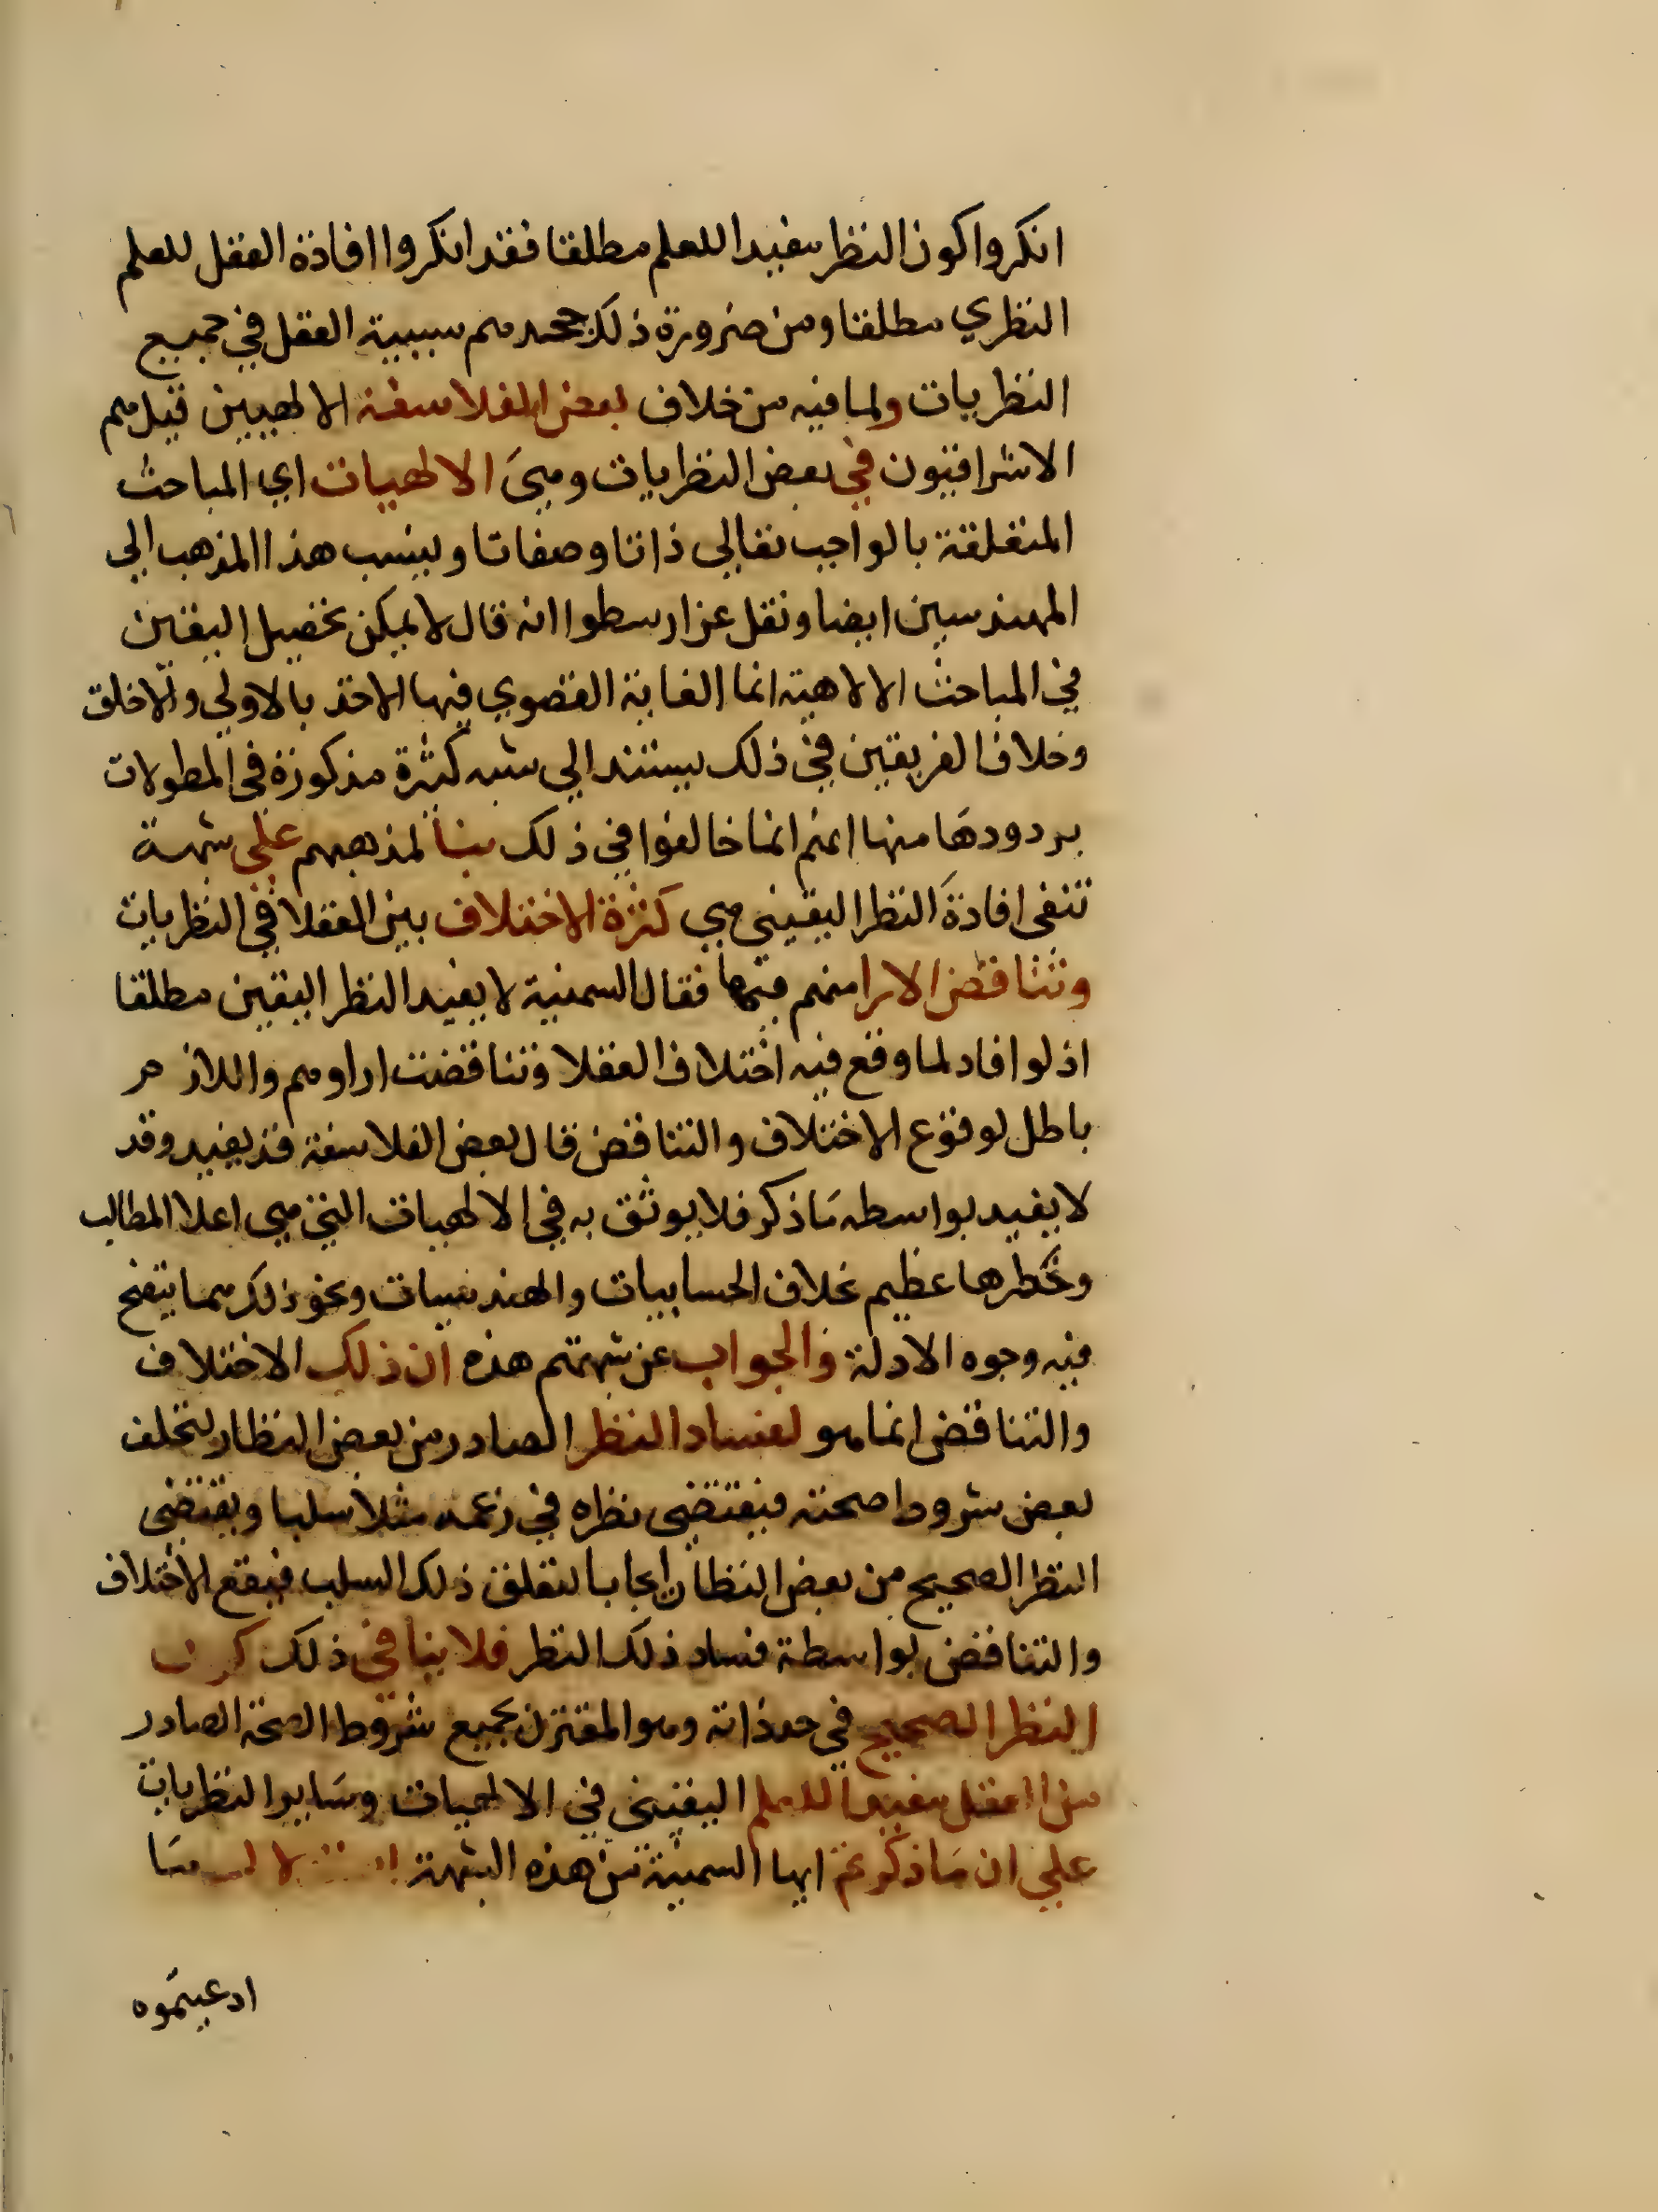 انكروا كون النظر مفيدا للعلم مطلقا فقد انكروا افادة العقل للعلم
النظري مطلقا ومن ضرورة ذلك جحدهم سببية العقل في جميع
النظريات ولما فيه من خلاف بعض الفلاسفة الالهيين قيل هم
الاشراقيون في بعض النظريات وهي الالهيات اي المباحث
المتعلقة بالواجب تعالي ذاتا وصفاتا وينسب هذا المذهب الي
المهندسين ايضا ونقل عن ارسطوا انه قال لا يمكن تحصيل اليقين
في المباحث الالاهية انما الغاية القصوي فيها الاخذ بالاولي والاخلق
وخلاف الفريقين في ذلك يستند الي شبه كثيرة مذكورة في المطولات
بردودها منها انهم انما خالفوا في ذلك بنا لمذهبهم علي شبهة
تنفي افادة النظر اليقيني هي كثرة الاختلاف بين العقلا في النظريات
وتناقض الارا منهم فيها فقال السمنية لا يفيد النظر اليقين مطلقا
اذ لو افاد لما وقع فيه اختلاف العقلا وتناقضت اراوهم واللازم
باطل لوقوع الاختلاف والتناقض قال بعض الفلاسفة قد يفيد وقد
لا يفيد بواسطه ما ذكر فلا يوثق به في الالهيات التي هي اعلا المطالب
وخطرها عظيم بخلاف الحسابيات والهندسيات ونحو ذلك مما يتضح
فيه وجوه الادلة والجواب عن شبهتهم هذه ان ذلك الاختلاف
والتناقض انما هو لفساد النظر الصادر من بعض النظار لتخلف
بعض شروط صحته فيقتضي نظره في زعمه مثلا سلبا ويقتضي
النظر الصحيح من بعض النظار ايجابا لتعلق ذلك السلب فيقع الاختلاف
والتناقض بواسطة فساد ذلك النظر فلا ينافي ذلك كون
النظر الصحيح في حد ذاته وهو المقترن بجميع شروط الصحة الصادر
من العقل مفيدا للعلم اليقيني في الالهيات وساير النظريات
علي ان ما ذكرتم ايها السمنية من هذه الشبهة
ادعيتموه